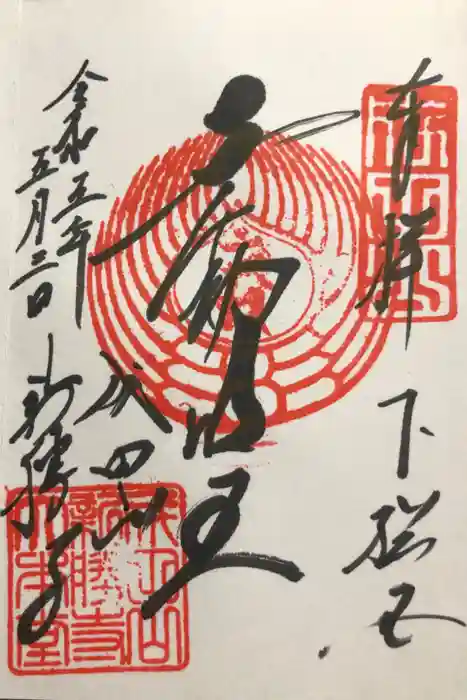 奉拝
下総國
不動明王
成田山
新勝寺
令和五年
五月三日
成田山
新勝寺
大本堂